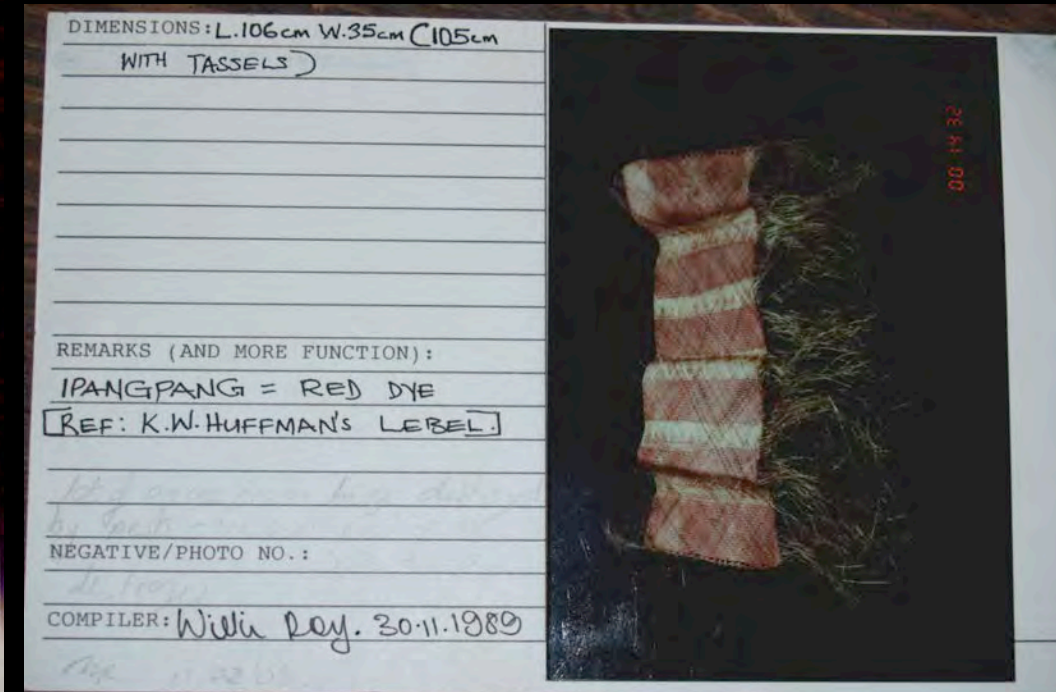 DIMENSIONS: L.106cm W.35cm (105cm
WITH TASSELS)
REMARKS (AND MORE FUNCTION):
IPANGPANG = RED DYE
[REF: K.W. HUFFMAN'S LEBEL.]
NEGATIVE/PHOTO NO.:
COMPILER: Willie Roy. 30.11.1989
00 14 32